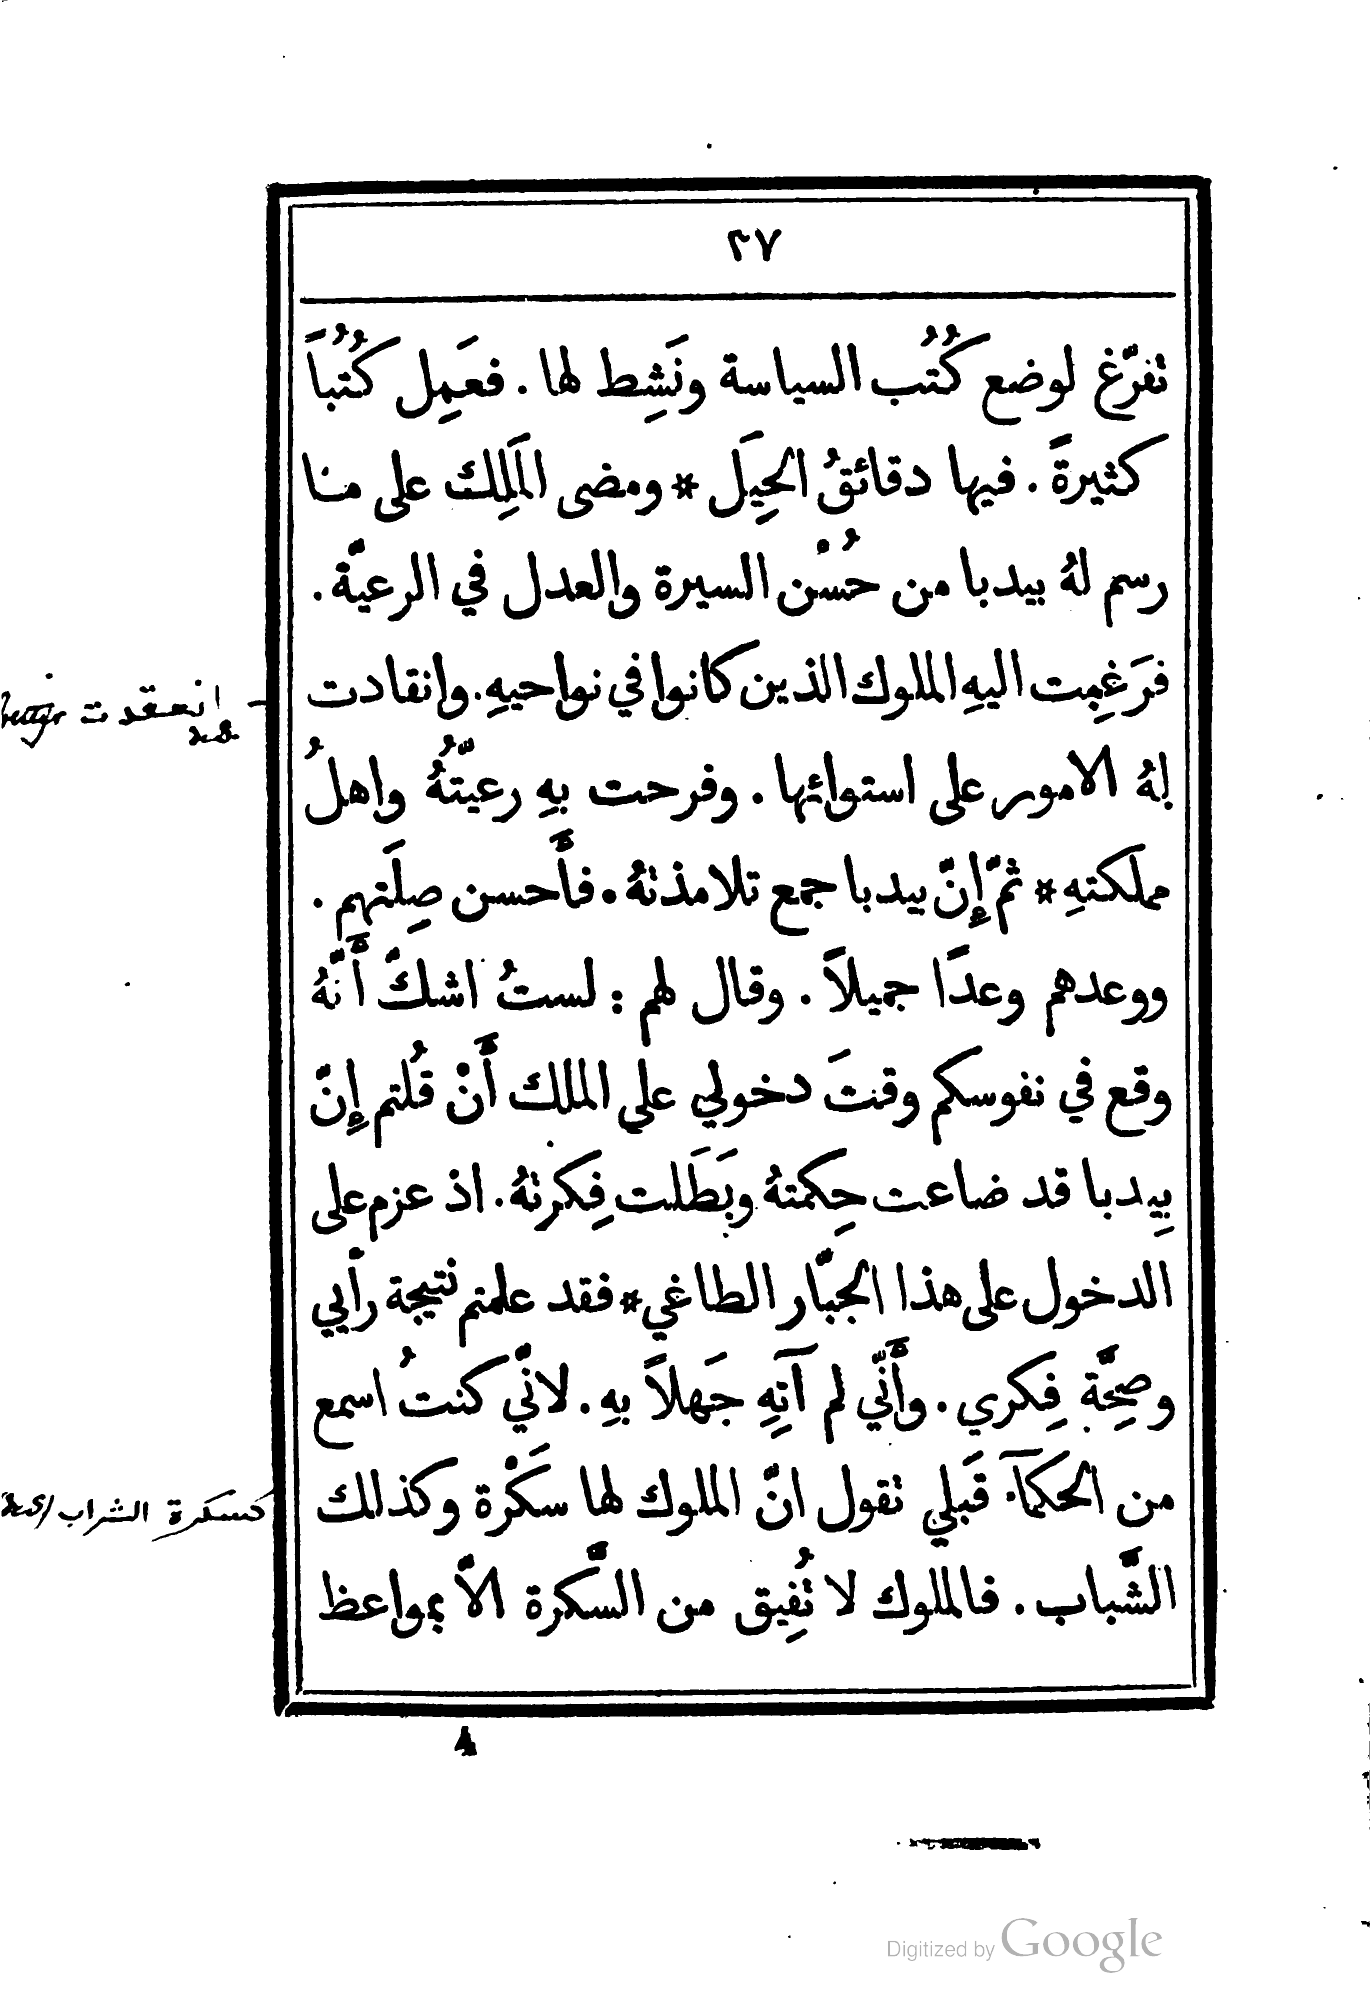 ٢٧
تفرّغ لوضع كُتُب السياسة ونَشِط لها . فعَمِل كُتُبًا
كثيرةً . فيها دقائقُ الحِيَل * ومضى المَلِك على ما
رسم لهُ بيدبا من حُسْن السيرة والعدل في الرعيَّة .
فرَغِبت اليهِ الملوك الذين كانوا في نواحيهِ . وانقادت
لهُ الامور على استوائها . وفرحت بهِ رعيّتهُ واهلُ
مملكتهِ * ثمّ إِنّ بيدبا جمع تلامذتهُ . فأَحسن صِلَتهم .
ووعدهم وعدًا جميلاً . وقال لهم : لستُ اشكّ أَنَّهُ
وقع في نفوسكم وقتَ دخولي على الملك أَنْ قُلتم إِنّ
بِيدبا قد ضاعت حِكمتهُ وبَطَلت فِكرتهُ . اذ عزم على
الدخول على هذا الجبّار الطاغي * فقد علمتم نتيجة رأيي
وصِحَّة فِكري . وأَنّي لم آتِهِ جَهلاً بهِ . لانّي كنتُ اسمع
من الحكمآء قَبلي تقول انّ الملوك لها سَكْرة وكذلك
الشَّباب . فالملوك لا تُفِيق من السَّكرة الاّ بمواعظ
انعقدت better
كسكرة الشراب
4
Digitized by Google